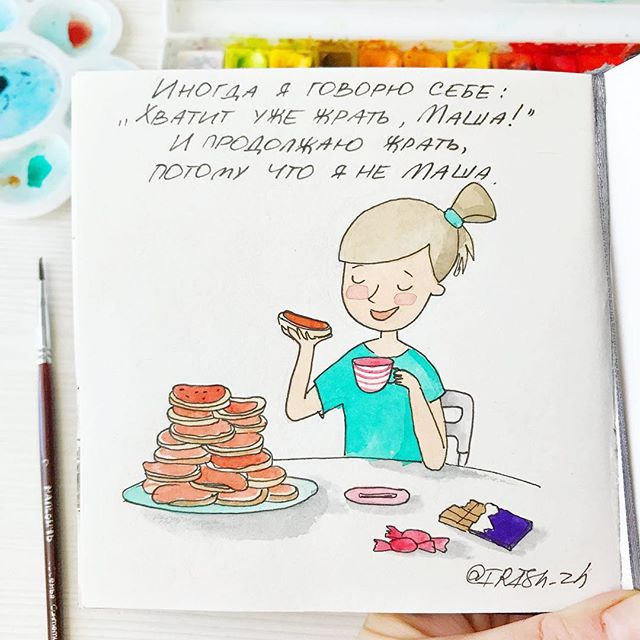 Иногда я говорю себе:
„Хватит уже жрать, Маша!"
И продолжаю жрать,
потому что я не Маша.
@IRISh_zh